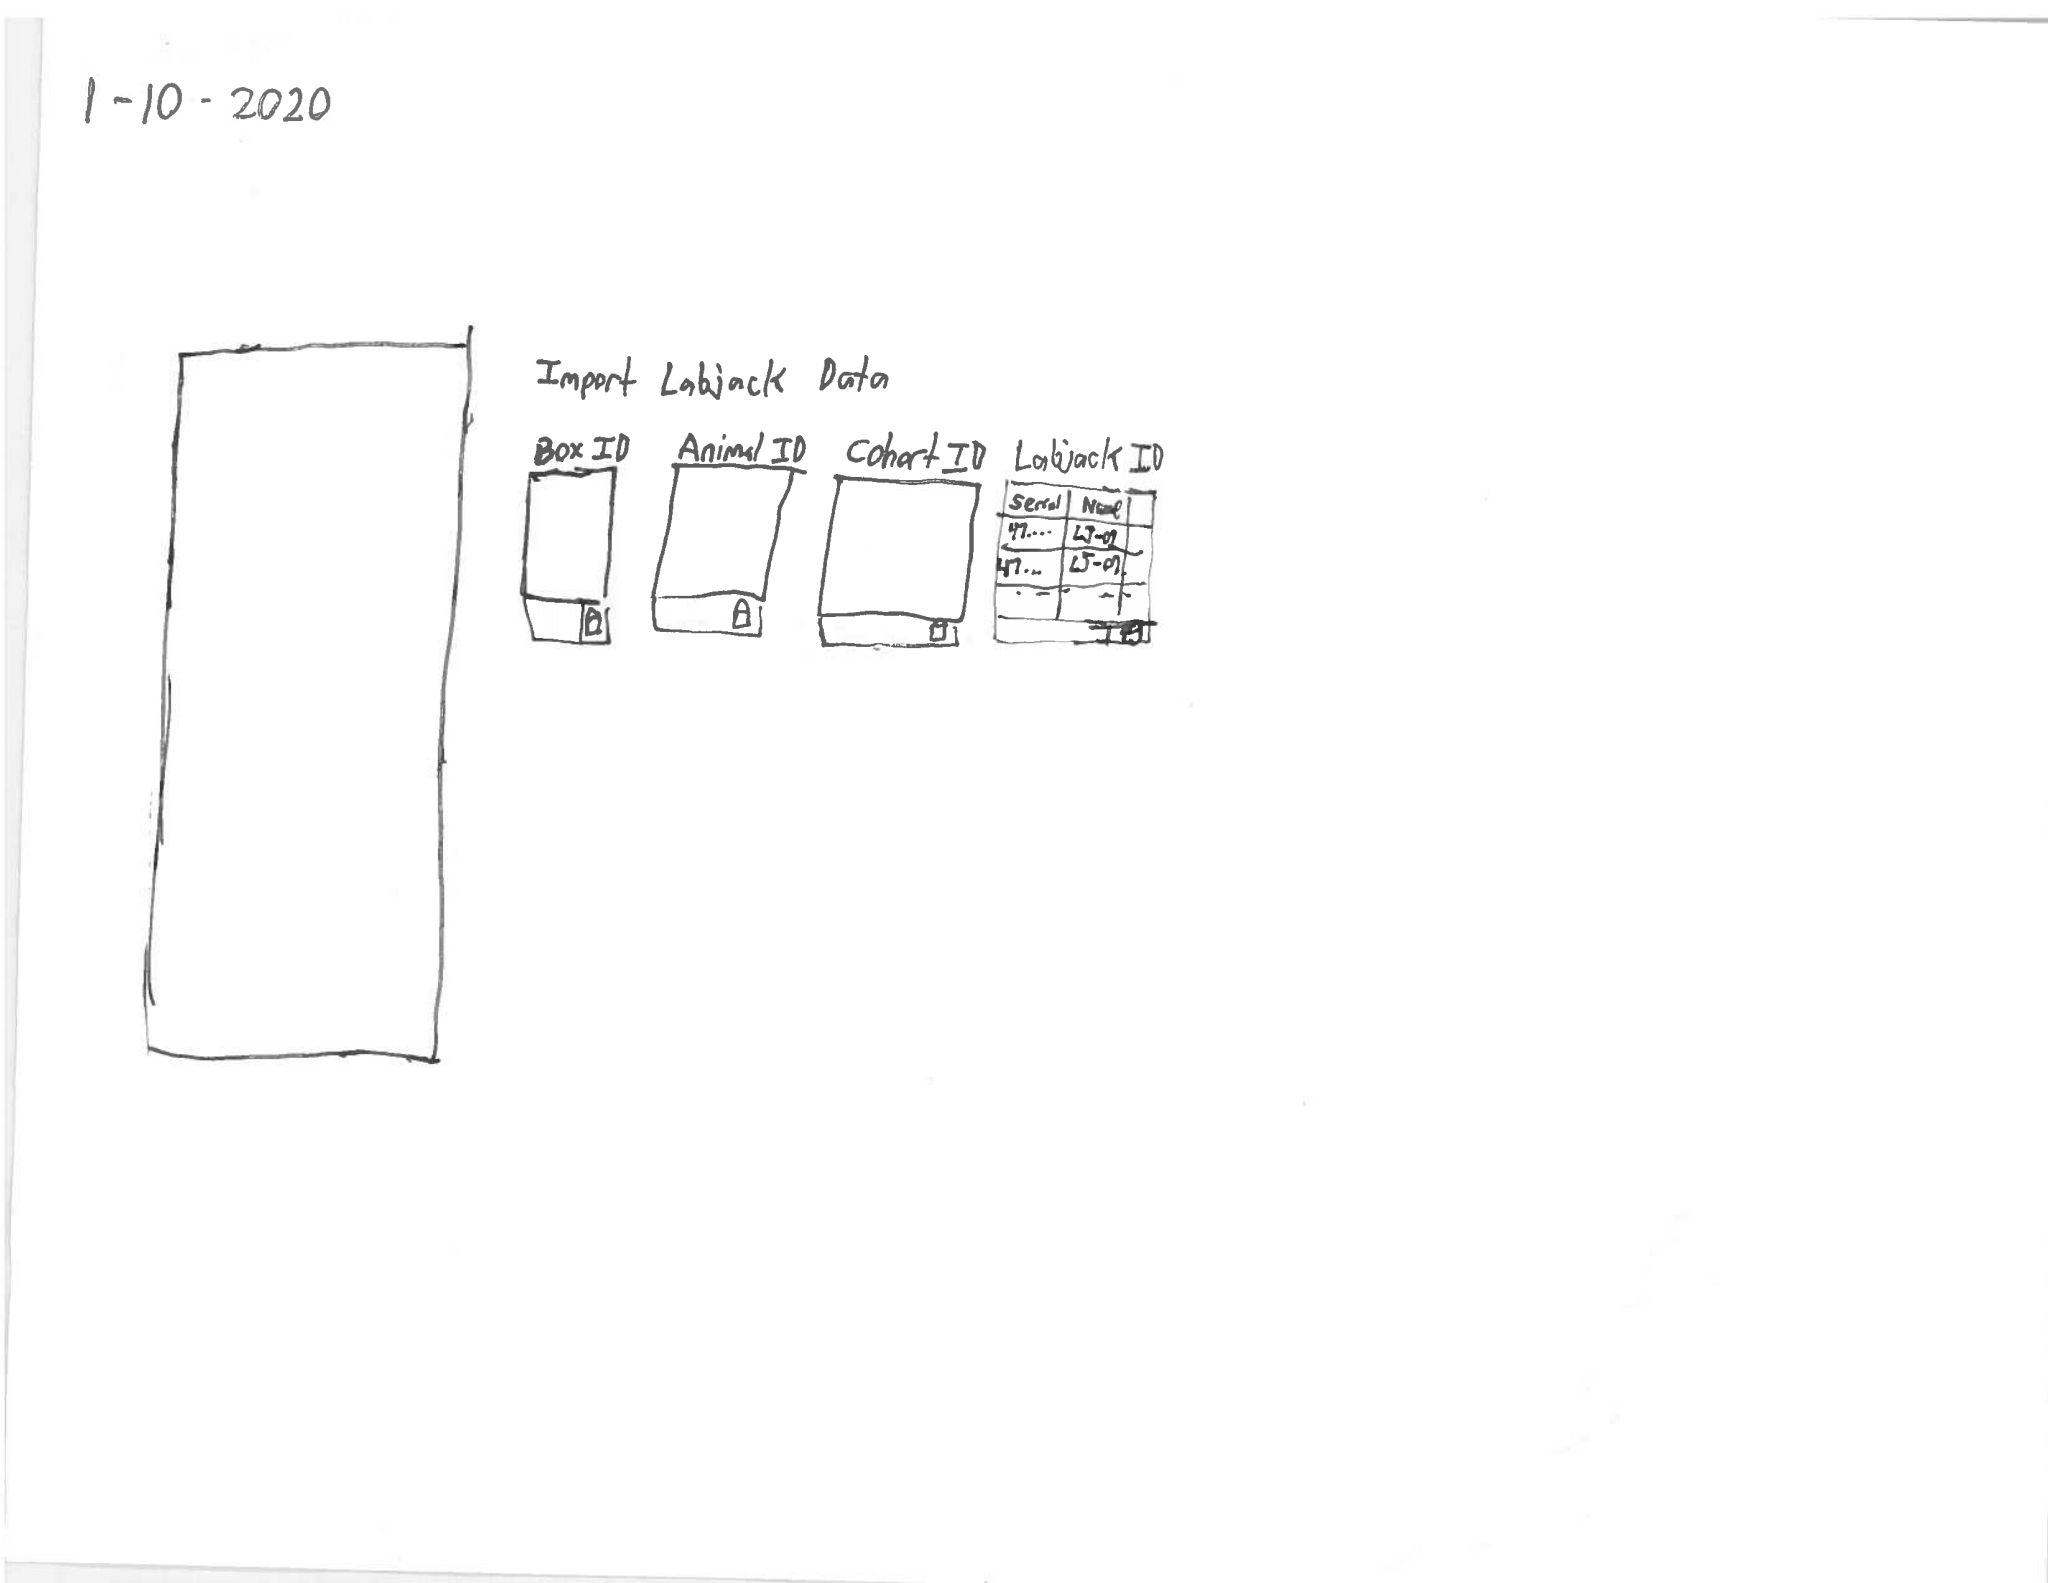 1-10-2020
Import Labjack Data
Box ID Animal ID Cohort ID Labjack ID
Serial Name
47.... LJ-01
47... LJ-01